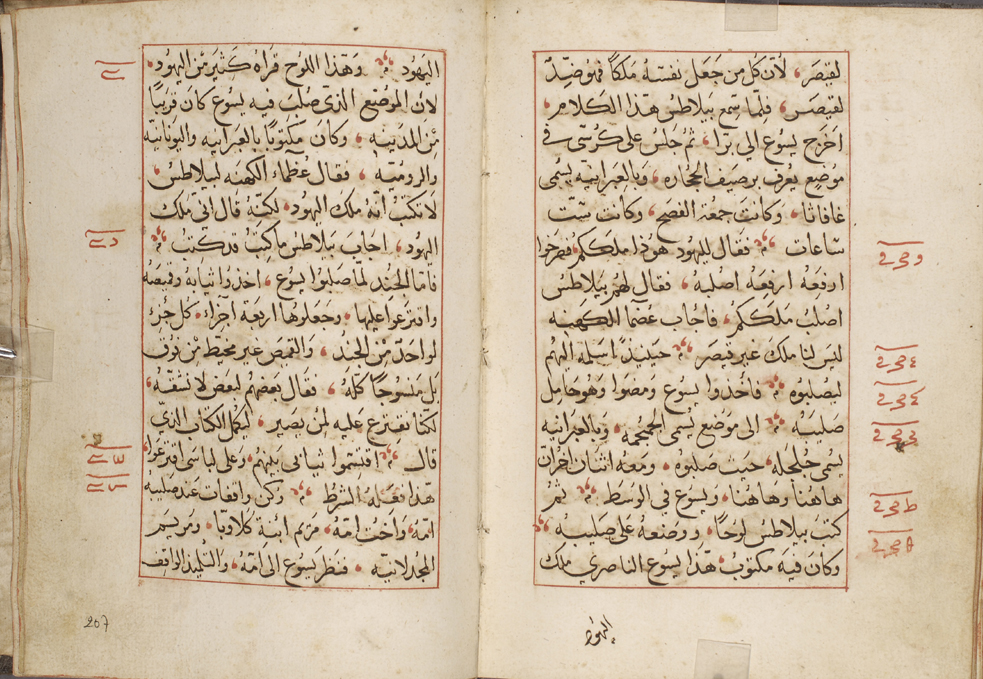 لقيصر، لان كل من جعل نفسه ملكا فهو ضد
لقيصر، فلما سمع بيلاطس هذا الكلام،
اخرج يسوع الي برا، ثم جلس على كرسي في
موضع يعرف برصيف الحجاره، وبالعبرانيه يسمى
غافاثا، وكانت جمعة الفصح، وكانت ست
ساعات فقال لليهود هوذا ملككم فصرخوا
ارفعه ارفعه اصلبه، فقال لهم بيلاطس
اصلب ملككم، فاجاب عضما الكهنه
ليس لنا ملك غير قيصر حينيذ اسلمه اليهم
ليصلبوه فاخذوا يسوع ومضوا وهو حامل
صليبه الى موضع يسمى الجمجمه، وبالعبرانيه
يسمى جلجله، حيث صلبوه، ومعه اثنان اخران
هاهنا وهاهنا، ويسوع في الوسط ثم
كتب بيلاطس لوحا، ووضعه على صليبه
وكان فيه مكتوب، هذا يسوع الناصري ملك
اليهود
اليهود وهذا اللوح قراه كثير من اليهود،
لان الموضع الذي صلب فيه يسوع كان قريبا
من المدينه، وكان مكتوبا بالعبرانيه واليونانيه
والروميه، فقال عظماء الكهنه لبيلاطس،
لا تكتب انه ملك اليهود، لكنه قال اني ملك
اليهود، اجاب بيلاطس ما كتبت قد كتبت
فاما الجند لما صلبوا يسوع، اخذوا ثيابه وقميصه
واقترعوا عليها، وجعلوها اربعة اجزاء، كل جزء
لواحد من الجند، والقميص غير مخيط من فوق
بل منسوجا كله، فقال بعضهم لبعض لا نشقه،
لكنا نقترع عليه لمن يصير، ليكمل الكتاب الذي
قال اقتسموا ثيابي بينهم، وعلى لباسي اقترعوا،
هذا فعله الشرط وكن واقفات عند صليبه
امه، واخت امه، مريم ابنة كلاوبا، ومريم
المجدلانيه، فنظر يسوع الى امه، والتلميذ الواقف
207